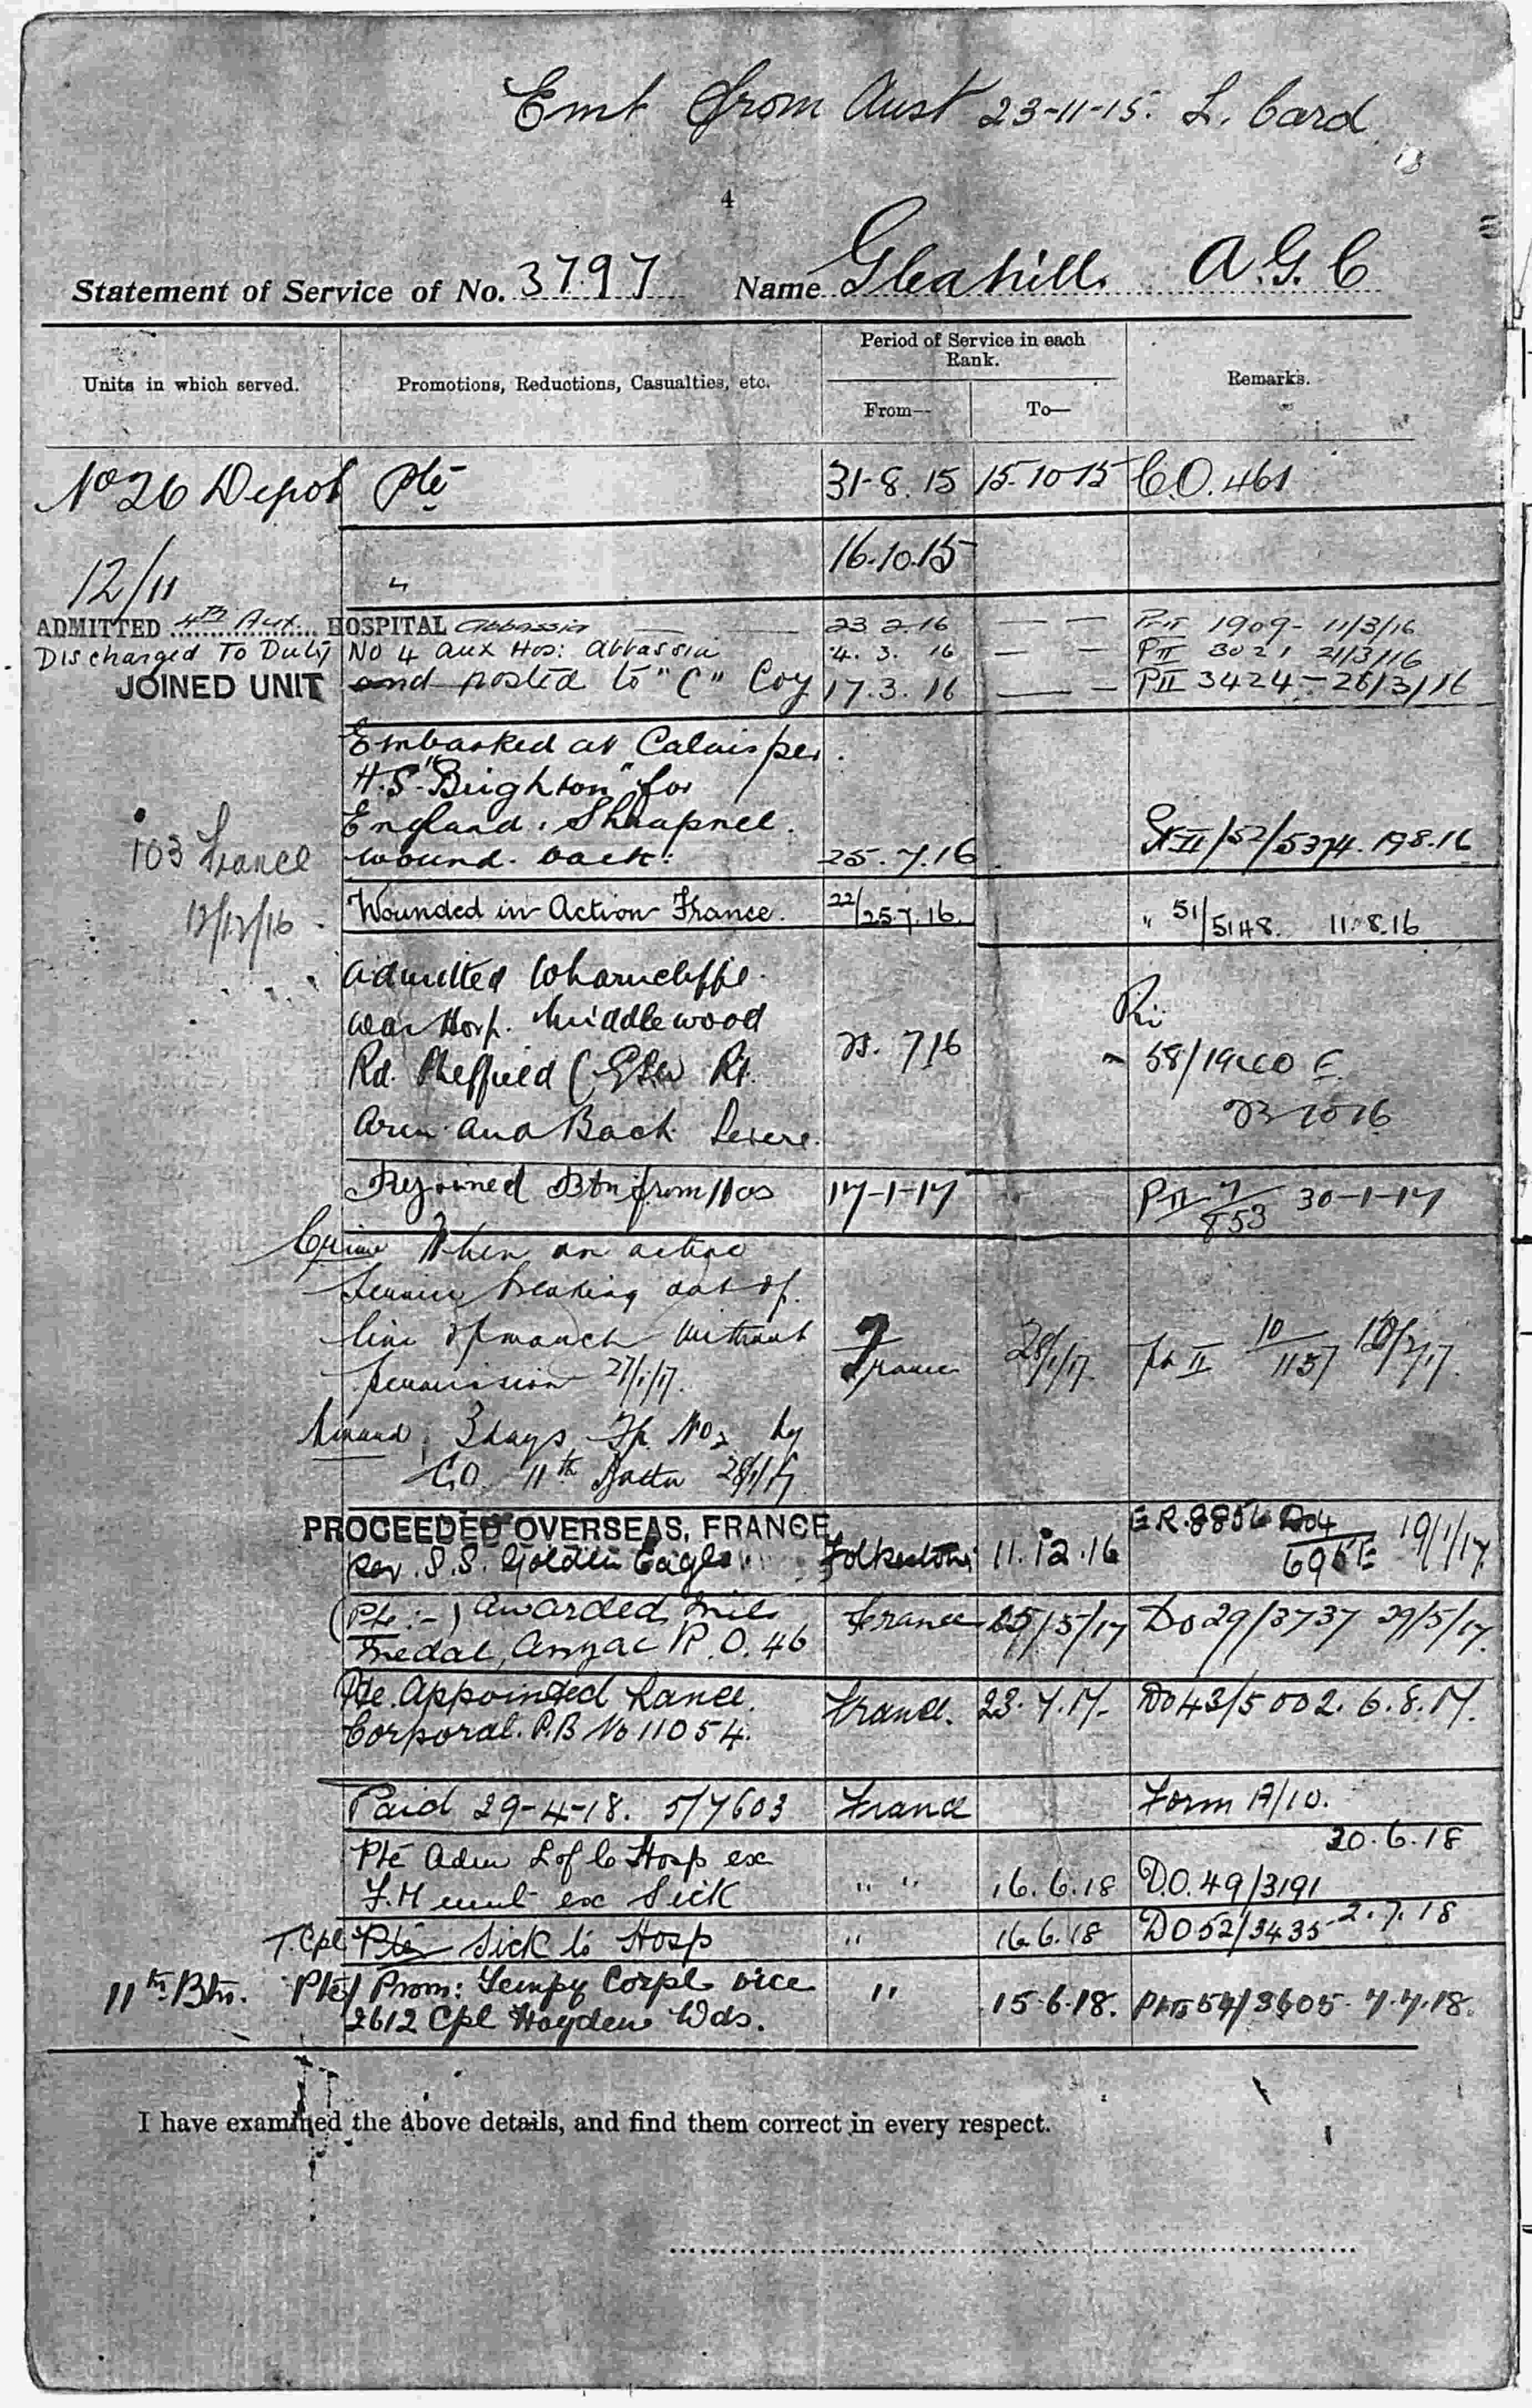 Emb from Aust 23-11-15. L. Card
4
Statement of Service of No. 3797 Name Gleahill. A.G.C
Units in which served.
Promotions, Reductions, Casualties, etc.
Period of Service in each Rank.
From— To—
Remarks.
No 26 Depot Pte 31-8.15 15-10-15 C.O.461
12/11 " 16.10.15
ADMITTED 4th Aux HOSPITAL Abbassia 23 2.16 — — PII 1909- 11/3/16
Discharged To Duty No 4 Aux Hos: Abbassia 4. 3. 16 — — PII 3021 21/3/16
JOINED UNIT and posted to "C" Coy 17.3.16 — — PII 3424 - 26/3/16
Embarked at Calais per
H.S. "Brighton" for
England. Shrapnel
wound. back. 25.7.16 52/5374. 19.8.16
103 France
12/12/16
Wounded in Action France. 22/25.7.16. " 51/5148. 11.8.16
Admitted Wharncliffe
War Hosp. Middlewood
Rd. Sheffield (GSW Rt. 7 16 58/1940 E
Arm and Back Severe. 23 10 16
Rejoined Btn from Hos 17-1-17 PII 7/853 30-1-17
Crime When on active
Service breaking out of
line of march without
permission 27/1/17. France 28/1/17. Pt II 10/1157
Award 3 days F.P. No 2 by
C.O. 11th Battn 28/1/17
PROCEEDED OVERSEAS, FRANCE
per. S.S. Golden Eagle Folkestone 11.12.16 E.R.8856 Do4 19/1/17
(Pte:-) Awarded Mil.
Medal, Anzac R.O. 46 France 25/5/17 Do29/3737 29/5/17.
Pte. Appointed Lance
Corporal. P.B No 11054. France. 23.7.17. Do43/5002. 6.8.17.
Paid 29-4-18. 5/7603 France Form A/10.
20.6.18
Pte Adm L of C Hosp ex
F.H ex Sick " " 16.6.18 D.O.49/3191
T.Cpl Pte Sick to Hosp " 16.6.18 DO52/3435 2.7.18
11th Btn. Pte/ Prom: Tempy Corpl vice " 15.6.18. 54/3605 7.7.18.
2612 Cpl Hayden Wds.
I have examined the above details, and find them correct in every respect.